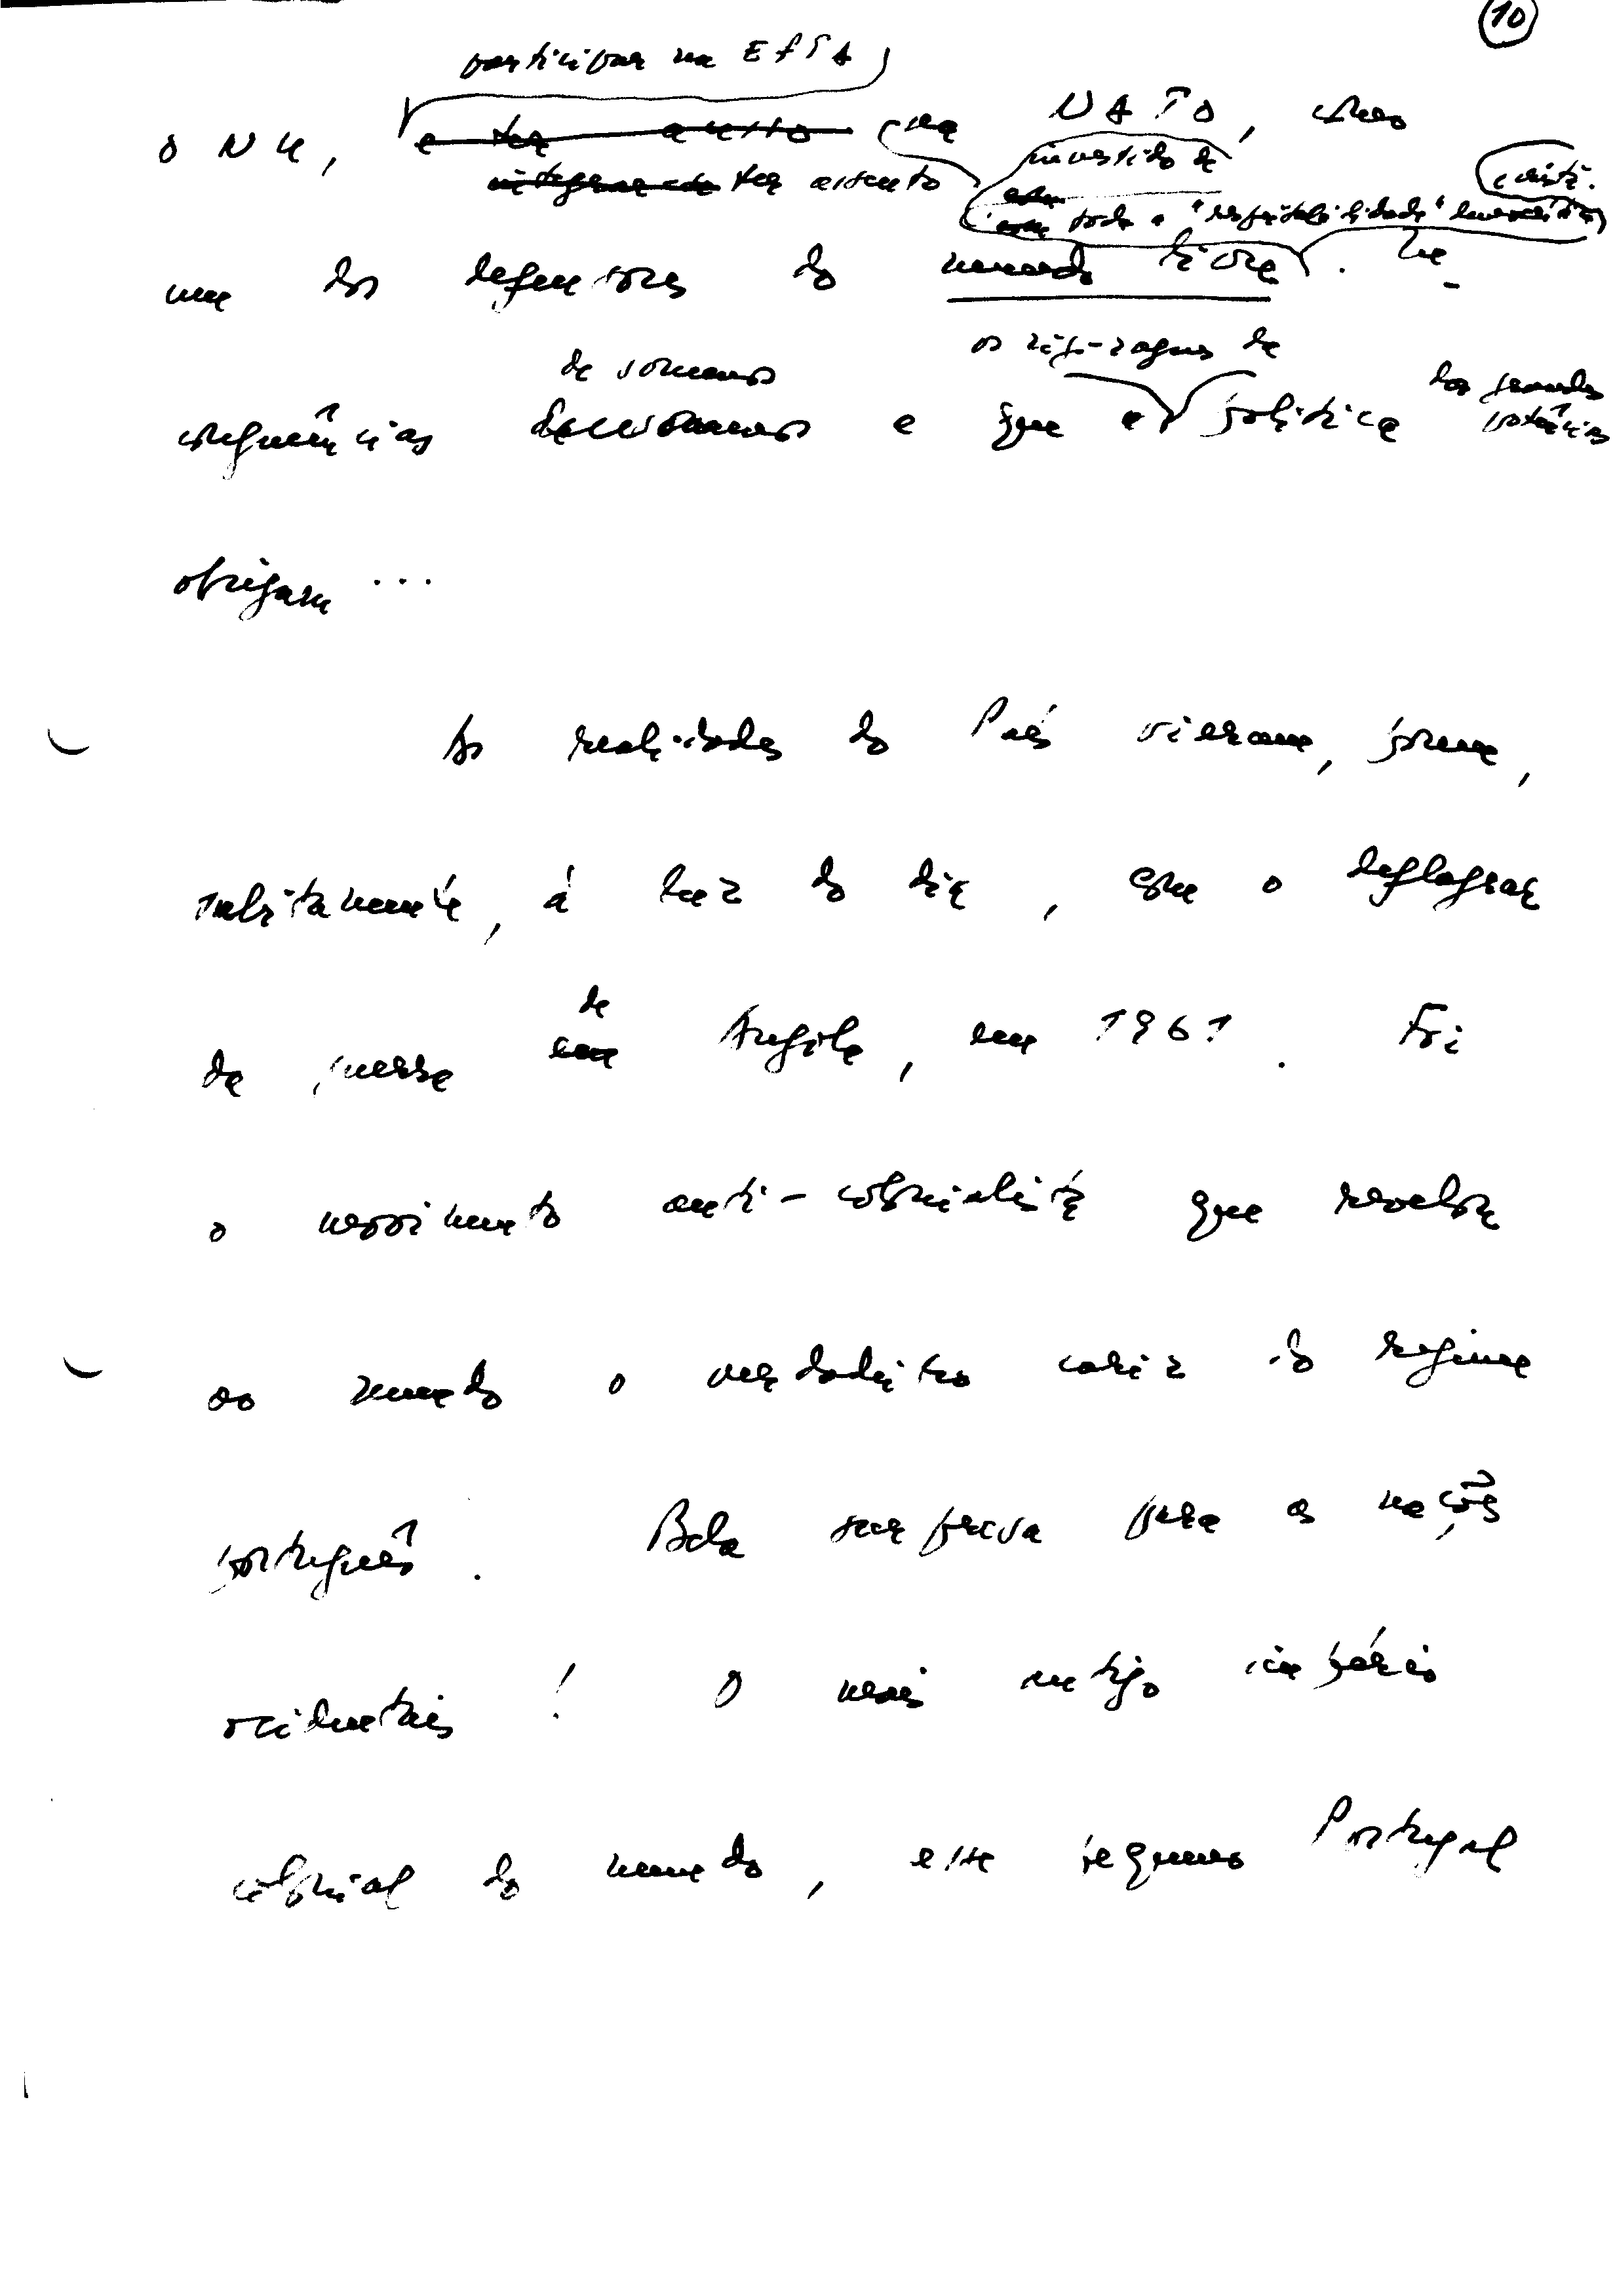 10
participar na EFTA
ONU, e ter acesso na NATO, como
ter assento
investido de
com toda a "respeitabilidade"
um dos defensores do mundo livre. In-
os zig-zagues de
de somenos
das grandes
consequências e que a política potências
obrigam ...
As realidades do País vieram, porem,
subitamente, á luz do dia, com o deflagrar
de
da guerra em Angola, em 1961. Foi
o movimento anti-colonialista que revelou
ao mundo o verdadeiro cariz do regime
português. Bela surpresa para as nações
ocidentais! O mais antigo império
colonial do mundo, esse pequeno Portugal